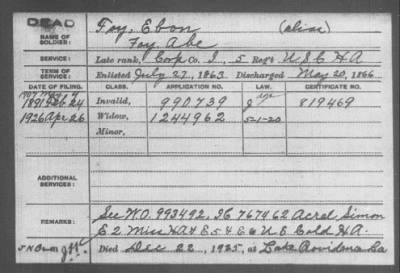 DEAD
NAME OF SOLDIER: Foy, Ebon (alias)
Foy, Abe
SERVICE: Late rank, Corp Co. I, 5 Reg't U S C H A
TERM OF SERVICE: Enlisted July 27, 1863 Discharged May 20, 1866
DATE OF FILING. CLASS. APPLICATION NO. LAW. CERTIFICATE NO.
1907 May 7
1891 Feb 24 Invalid, 990739 819469
1926 Apr 26 Widow, 1244962 5-1-20
Minor,
ADDITIONAL SERVICES:
REMARKS: See W.O. 993492, 767962 Acrel Simon
E 2 Miss H A & E 5 & 6 U S Cold H A.
Died Dec 22, 1925, at Lake Providence La